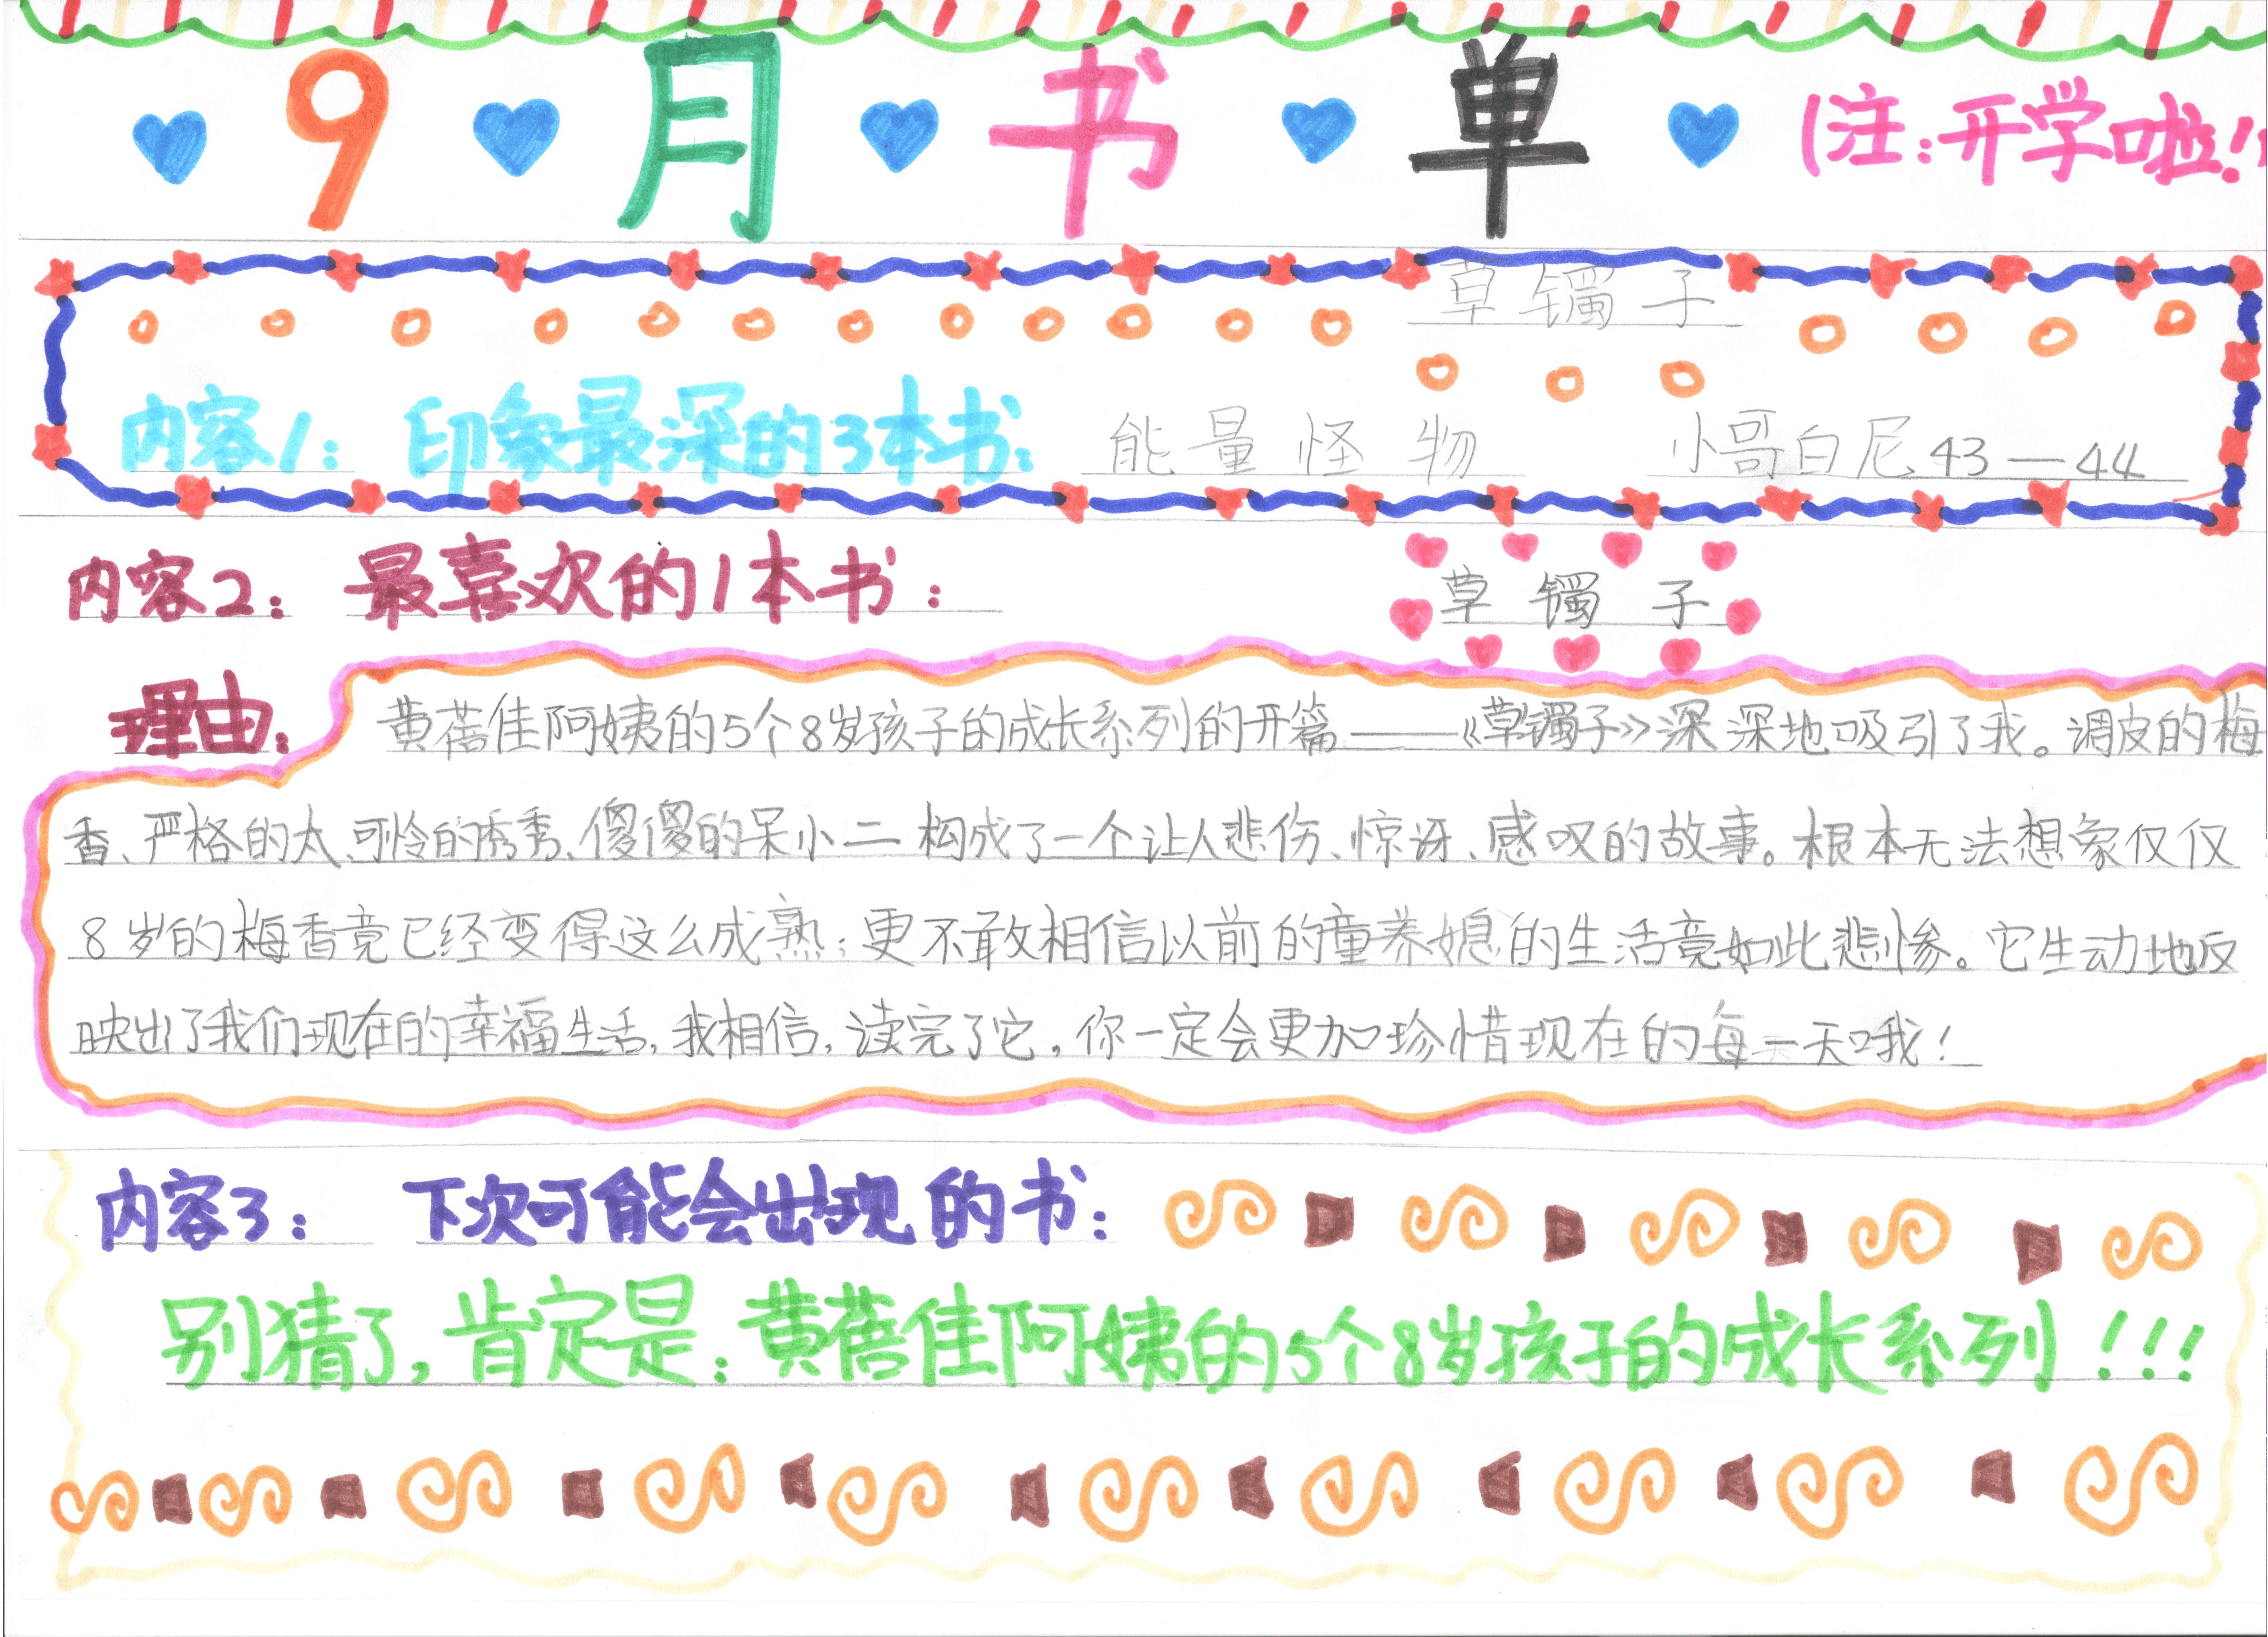 9月书单 (注:开学啦!)
草镯子
内容1: 印象最深的3本书: 能量怪物 小哥白尼43—44
内容2: 最喜欢的1本书: 草镯子
理由: 黄蓓佳阿姨的5个8岁孩子的成长系列的开篇——《草镯子》深深地吸引了我。调皮的梅
香、严格的太、可怜的秀秀、傻傻的呆小二构成了一个让人悲伤、惊讶、感叹的故事。根本无法想象仅仅
8岁的梅香竟已经变得这么成熟;更不敢相信以前的童养媳的生活竟如此悲惨。它生动地反
映出了我们现在的幸福生活,我相信,读完了它,你一定会更加珍惜现在的每一天哦!
内容3: 下次可能会出现的书:
别猜了,肯定是:黄蓓佳阿姨的5个8岁孩子的成长系列!!!